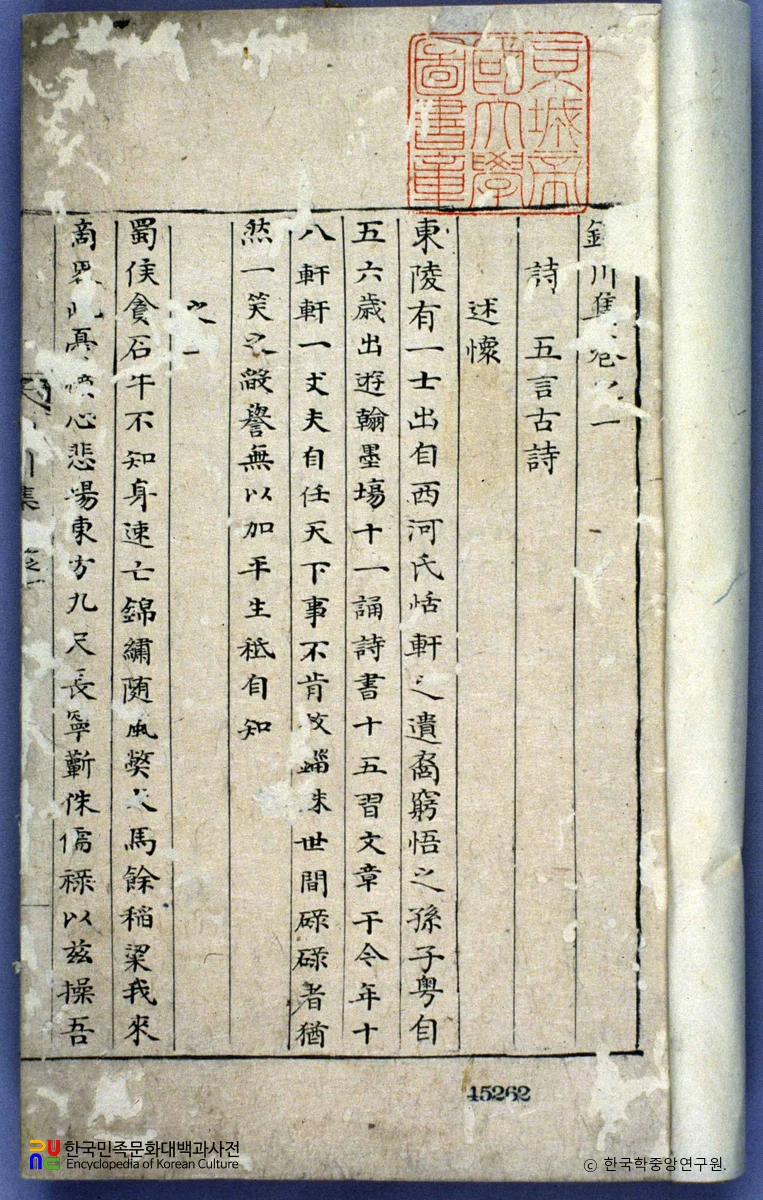 京城帝
國大學
圖書章
川集卷之一
詩 五言古詩
述懷
東陵有一士出自西河氏恬軒之遺裔窮悟之孫子粤自
五六歲出遊翰墨塲十一誦詩書十五習文章于今年十
八軒軒一丈夫自任天下事不肯效錙銖世間碌碌者猶
然一笑之毁譽無以加平生秪自知
蜀侯貪石牛不知身速亡錦繡随風獘犬馬餘稻粱我來
此心悲場東方九尺長寧蘄侏儒祿以茲操吾
川集
45262
한국민족문화대백과사전
Encyclopedia of Korean Culture
ⓒ 한국학중앙연구원.